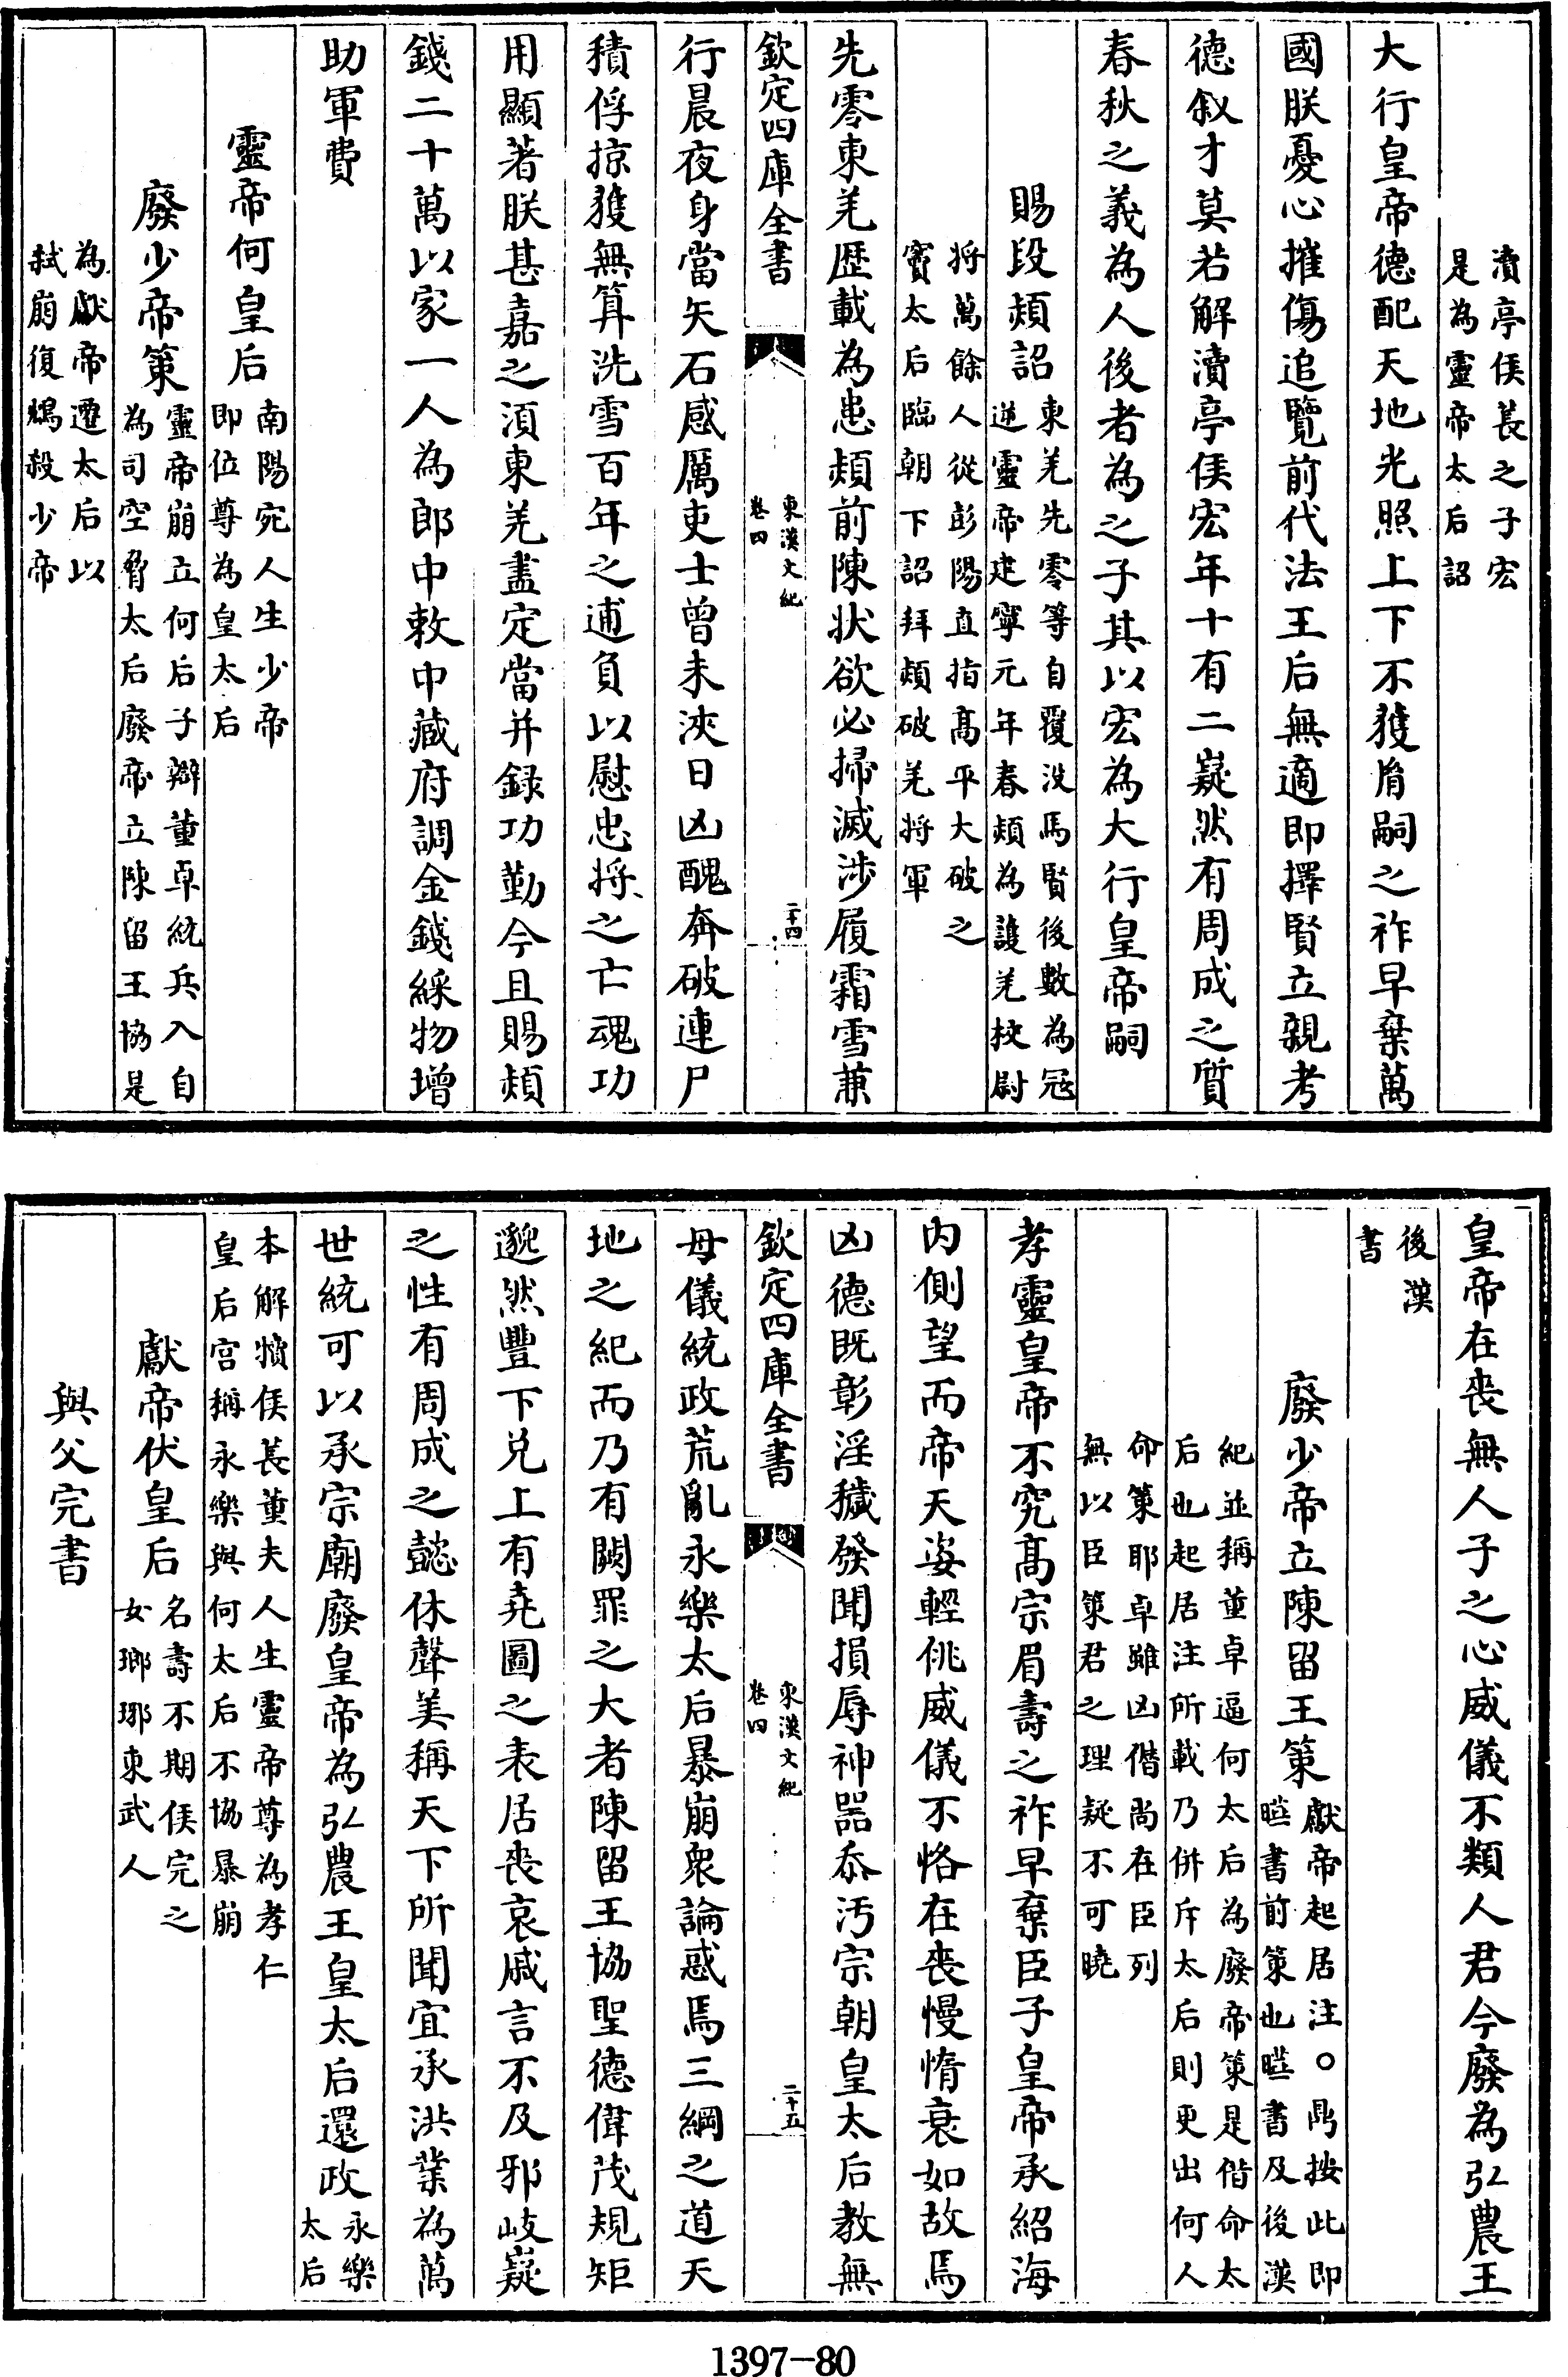 瀆亭侯萇之子宏
是為靈帝太后詔
大行皇帝德配天地光照上下不獲胤嗣之祚早棄萬
國朕憂心摧傷追覽前代法王后無適即擇賢立親考
德叙才莫若解瀆亭侯宏年十有二嶷然有周成之質
春秋之義為人後者為之子其以宏為大行皇帝嗣
賜段熲詔東羌先零等自覆没馬賢後數為冦
逆靈帝建寧元年春熲為護羌校尉
將萬餘人從彭陽直指髙平大破之
竇太后臨朝下詔拜熲破羌將軍
先零東羌歴載為患熲前陳狀欲必掃滅涉履霜雪兼
欽定四庫全書
東漢文紀
卷四
二十四
行晨夜身當矢石感厲吏士曾未浹日凶醜奔破連尸
積俘掠獲無算洗雪百年之逋負以慰忠將之亡魂功
用顯著朕甚嘉之須東羌盡定當并録功勤今且賜熲
錢二十萬以家一人為郎中敕中藏府調金錢綵物增
助軍費
靈帝何皇后南陽宛人生少帝
即位尊為皇太后
廢少帝策靈帝崩立何后子辯董卓統兵入自
為司空脅太后廢帝立陳留王協是
為獻帝遷太后以
弑崩復鴆殺少帝
皇帝在喪無人子之心威儀不類人君今廢為弘農王
後漢
書
廢少帝立陳留王策獻帝起居注○鼎按此即
㬱書前策也㬱書及後漢
紀並稱董卓逼何太后為廢帝策是偕命太
后也起居注所載乃併斥太后則更出何人
命策耶卓雖凶僭尚在臣列
無以臣策君之理疑不可曉
孝靈皇帝不究髙宗眉壽之祚早棄臣子皇帝承紹海
内側望而帝天姿輕佻威儀不恪在喪慢惰衰如故焉
凶德既彰淫穢發聞損辱神器忝汚宗朝皇太后教無
欽定四庫全書
東漢文紀
卷四
二十五
母儀統政荒亂永樂太后暴崩衆論惑焉三綱之道天
地之紀而乃有闕罪之大者陳留王協聖德偉茂規矩
邈然豐下兑上有堯圖之表居喪哀戚言不及邪岐嶷
之性有周成之懿休聲美稱天下所聞宜承洪業為萬
世統可以承宗廟廢皇帝為弘農王皇太后還政永樂
太后
本解犢侯萇董夫人生靈帝尊為孝仁
皇后宫稱永樂與何太后不協暴崩
獻帝伏皇后名壽不期侯完之
女瑯琊東武人
與父完書
1397-80